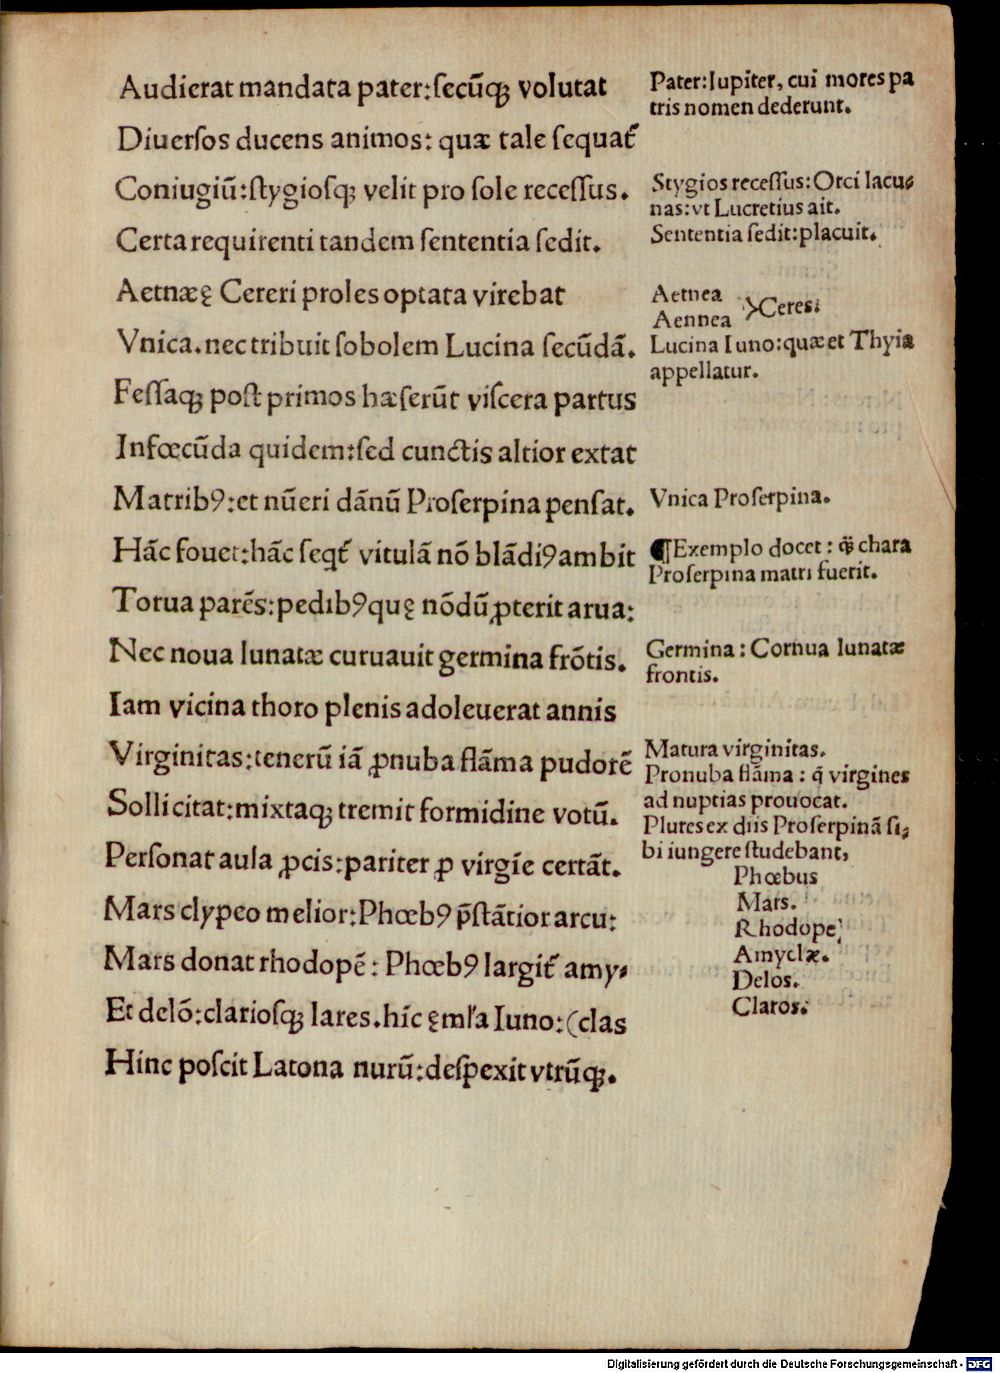 Audierat mandata pater:ſecūqꝫ volutat
Diuerſos ducens animos: quæ tale ſequat᷑
Coniugiū:ſtygioſqꝫ velit pro ſole receſſus.
Certa requirenti tandem ſententia ſedit.
Aetnæę Cereri proles optata virebat
Vnica.nec tribuit ſobolem Lucina ſecūdā.
Feſſaqꝫ poſt primos hæſerūt viſcera partus
Infœcūda quidem:ſed cunctis altior extat
Matribꝰ:et nūeri dānū Proſerpina penſat.
Hāc fouet:hāc ſeqt᷑ vitulā nō blādiꝰ ambit
Torua parēs:pedibꝰ quę nōdū ꝓterit arua:
Nec noua lunatæ curuauit germina frōtis.
Iam vicina thoro plenis adoleuerat annis
Virginitas:tenerū iā ꝓnuba flāma pudorē
Sollicitat:mixtaqꝫ tremit formidine votū.
Perſonat aula ꝓcis:pariter ꝓ virgīe certāt.
Mars clypeo melior:Phœbꝰ p̄ſtātior arcu:
Mars donat rhodopē: Phœbꝰ largit᷑ amy⸗
Et delō:clarioſqꝫ lares.híc ęml’a Iuno:(clas
Hinc poſcit Latona nurū:deſpexit vtrūqꝫ.
Pater:Iupiter, cui mores pa
tris nomen dederunt.
Stygios receſſus:Orci lacu⸗
nas:vt Lucretius ait.
Sententia ſedit:placuit.
Aetnea
Aennea
Ceres:
Lucina Iuno:quæ et Thyia
appellatur.
Vnica Proſerpina.
¶Exemplo docet: q̄ꝫ chara
Proſerpina matri fuerit.
Germina: Cornua lunatæ
frontis.
Matura virginitas.
Pronuba flāma: q̄ virgines
ad nuptias prouocat.
Plures ex diis Proſerpinā ſi⸗
bi iungere ſtudebant,
Phœbus
Mars.
Rhodope
Amyclæ.
Delos.
Claros.
Digitalisierung gefördert durch die Deutsche Forschungsgemeinschaft - DFG